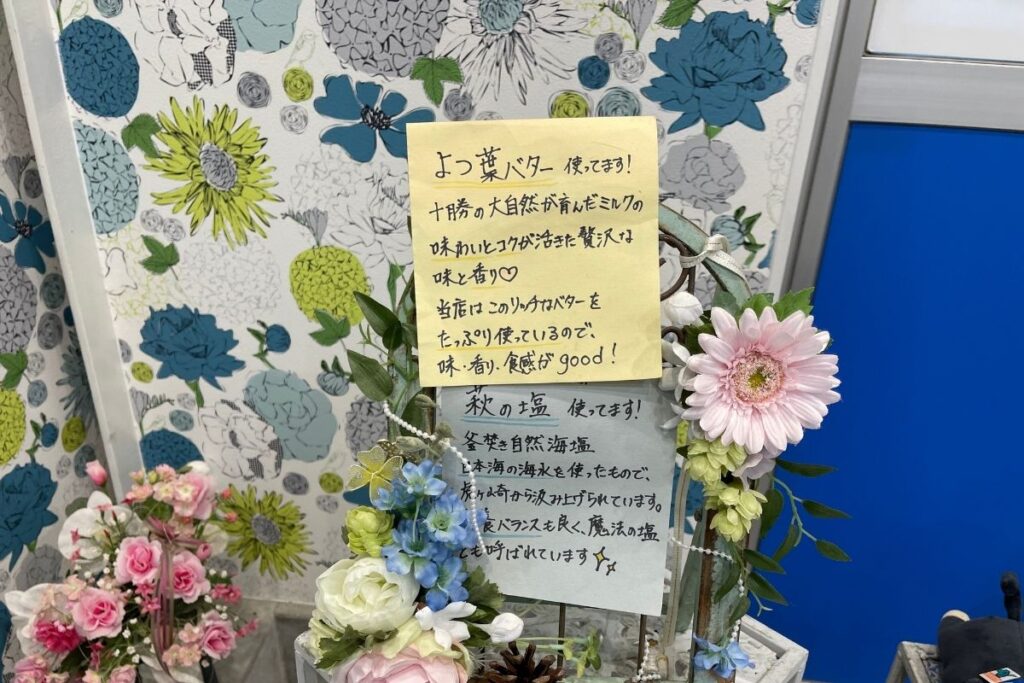 よつ葉バター 使ってます!
十勝の大自然が育んだミルクの
味わいとコクが活きた贅沢な
味と香り♡
当店はこのリッチなバターを
たっぷり使っているので、
味・香り・食感がgood!
萩の塩 使ってます!
釜焚き自然海塩
日本海の海水を使ったもので、
虎ヶ崎から汲み上げられています。
バランスも良く、魔法の塩
とも呼ばれています✨